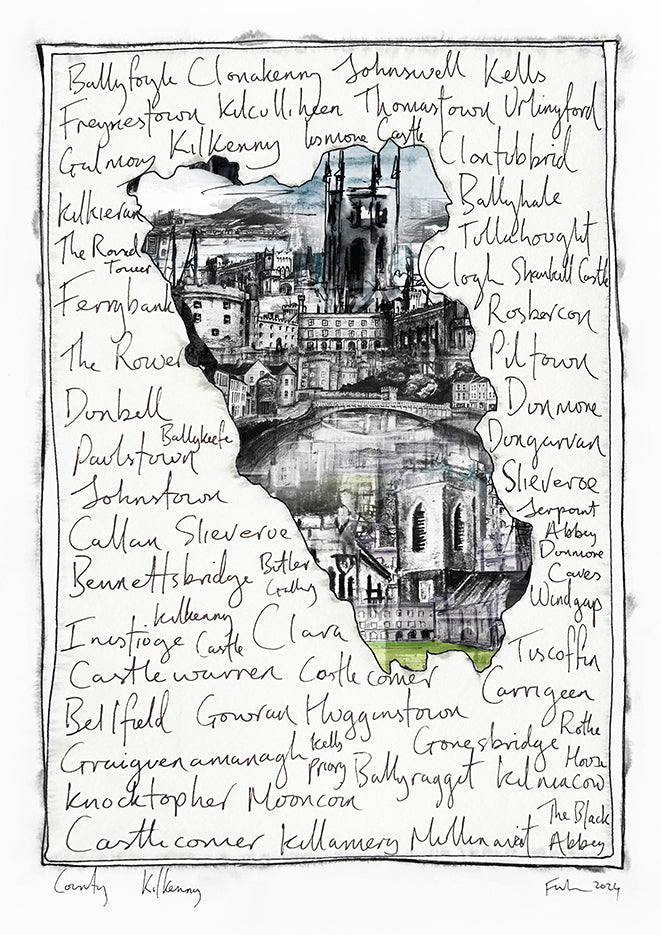 Ballyfoyle Clonakenny Johnswell Kells
Freynestown Kilculliheen Thomastown Urlingford
Galmoy Kilkenny Lismore Castle Clontubbrid
Kilkieran Ballyhale
The Round Tower Tullahought
Clogh Shankill Castle
Ferrybank Rosbercon
The Rower Piltown
Dunbell Dunmore
Ballykeefe
Paulstown Dungarvan
Johnstown Slieveroe
Jerpoint Abbey
Callan Slieverue
Dunmore Caves
Bennettsbridge Butler Gallery
Windgap
Inistioge Kilkenny Castle Clara
Tuscoffin
Castlewarren Castlecomer
Carrigeen
Bellfield Gowran Hugginstown
Rothe House
Graiguenamanagh Kells Priory Gonesbridge
Ballyragget Kilmacow
Knocktopher Mooncoin
The Black Abbey
Castlecomer Killamery Mullinavat
County Kilkenny
2024